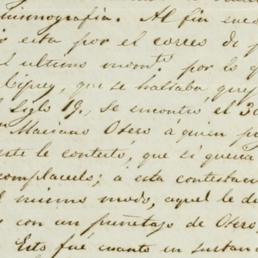 himnografia. Al fin suc
esta por el correo de
ultimo mont.º por lo q
Ciprey, que se hallaba quej
Siglo 19, se encontró el 30
Mariano Osero a quien p
le contestó, que si queria
complacerlo; a esta contestac
mismo modo, aquel le d
con un puñetazo de Osero,
Esto fue cuanto en sustan